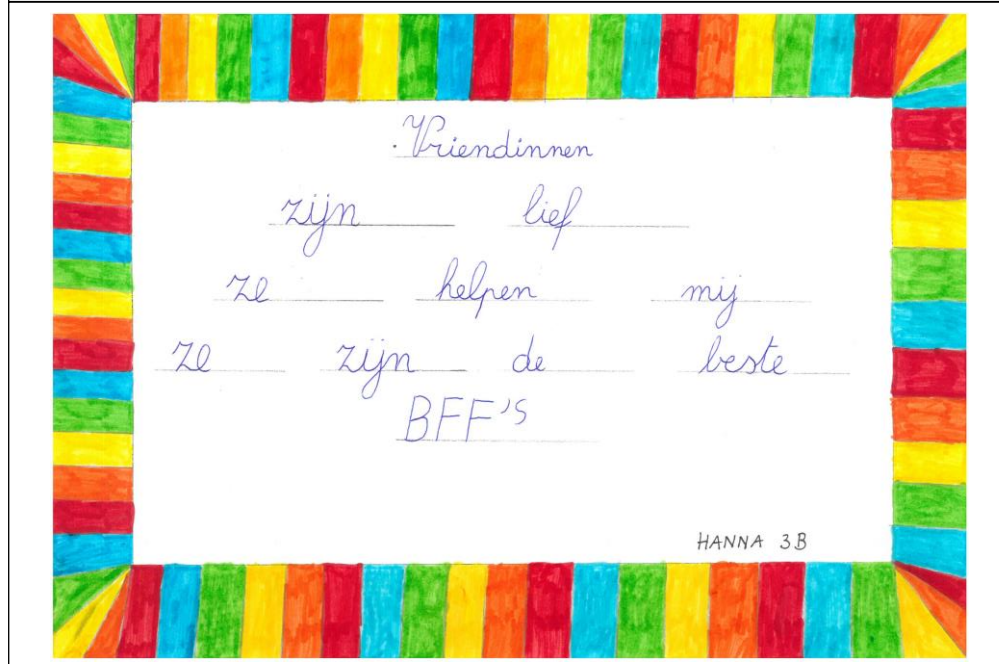 Vriendinnen
zijn lief
ze helpen mij
ze zijn de beste
BFF's
HANNA 3B